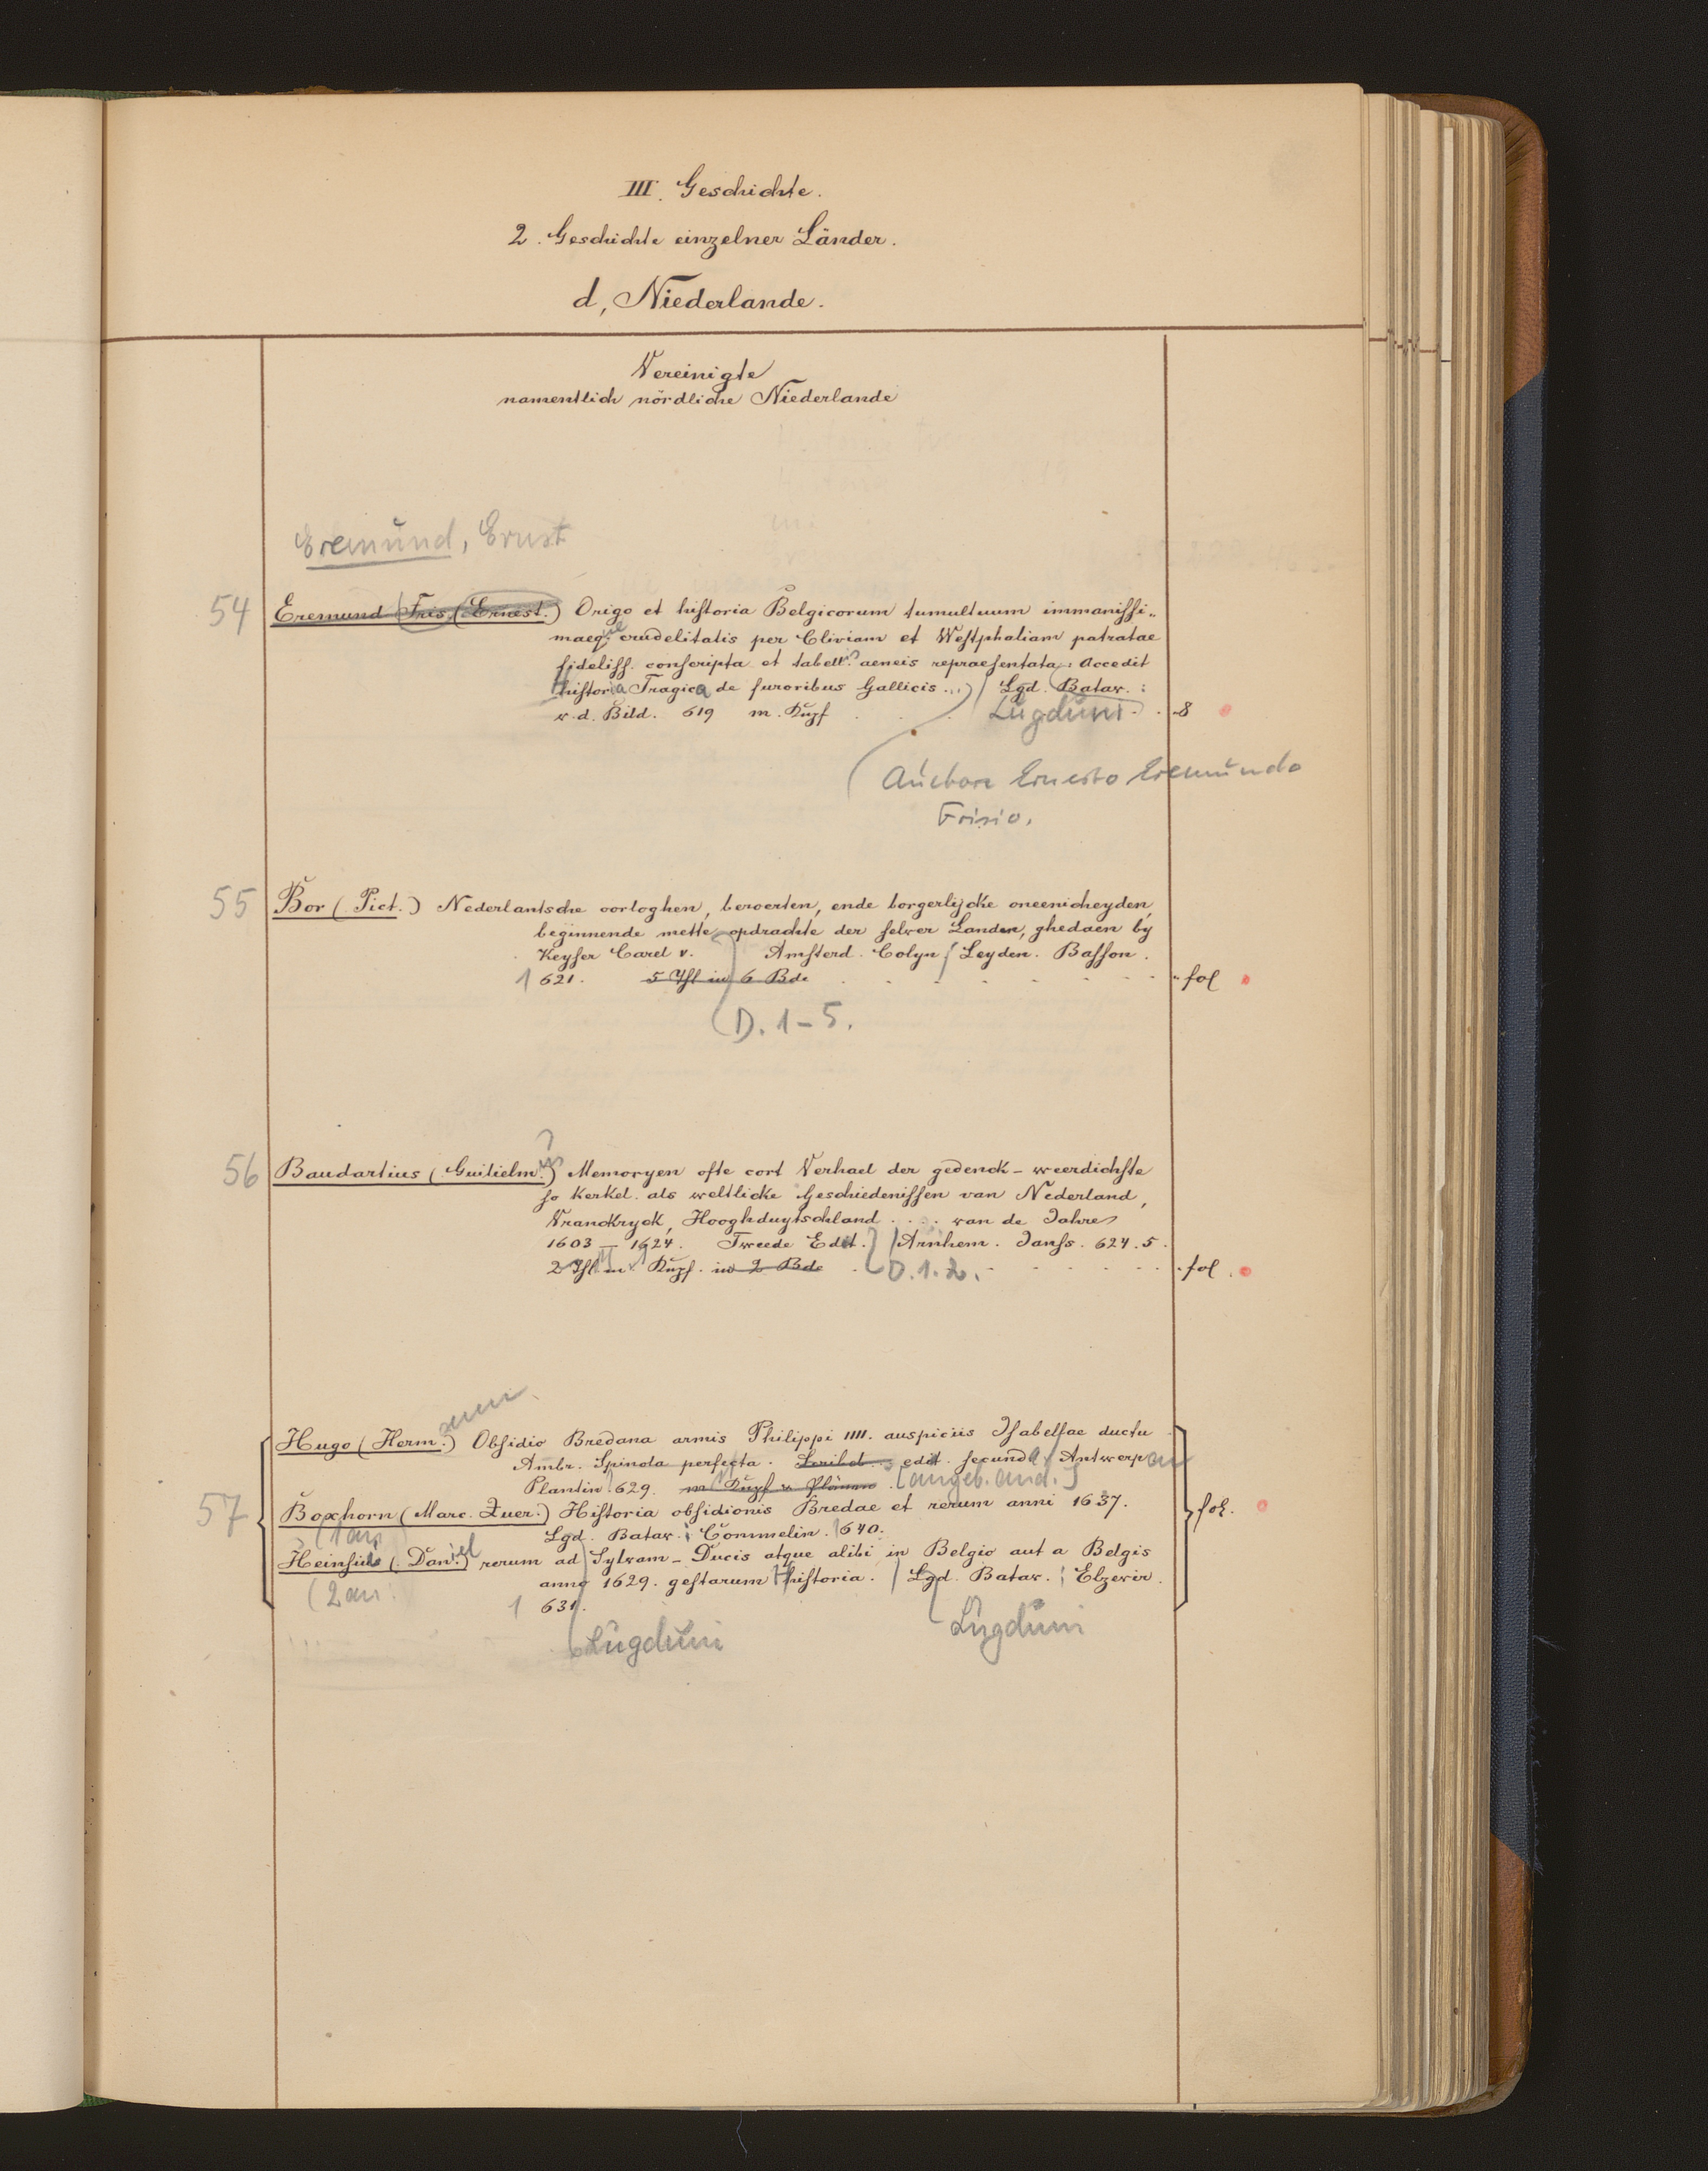 III. Geschichte.
2. Geschichte einzelner Länder.
d, Niederlande.
Vereinigte
namentlich nördliche Niederlande
Eremund, Ernst
54 Eremund Fris. (Ernest.) Origo et historia Belgicorum tumultuum immanissi-
maeq. ue crudelitatis per Cliviam et Westphaliam patratae
fideliss. conscripta et tabell. aeneis repraesentata: Accedit
historia Tragica de furoribus Gallicis ...) / Lgd. Batav. :
v. d. Bild. 619 m. Kupf Lugduni 8
(Auctore Ernesto Eremundo
Frisio.
55 Bor (Piet.) Nederlantsche oorloghen, beroerten, ende borgerlijcke oneenicheyden,
beginnende mette opdrachte der selver Landen, ghedaen by
Keyser Carel v. Amsterd. Colyn / Leyden. Basson.
1621. 5 Thl in 6 Bde fol
(D. 1-5.
56 Baudartius (Guilielm.) us Memoryen ofte cort Verhael der gedenck-weerdichste
so kerkel. als weltlicke Geschiedenissen van Nederland,
Vranckryck, Hooghduytschland .... van de Jahre
1603 - 1624. Tweede Edit. / Arnhem. Janss. 624. 5.
2 Thl m. Kupf. in 2 Bde D. 1. 2. fol.
Hugo (Herm.) Obsidio Bredana armis Philippi IIII. auspiciis Isabellae ductu
Ambr. Spinola perfecta. edit. secunda / Antwerp
Plantin 1629. m Kupf u Plänen. [angeb. and.]
57 Boxhorn (Marc. Zuer.) Historia obsidionis Bredae et rerum anni 1637. fol.
(1 an Lgd. Batav. : Commelin. 1640.
Heinsius (Daniel) rerum ad Sylvam-Ducis atque alibi in Belgio aut a Belgis
(2 an: anno 1629. gestarum Historia. / Lgd. Batav. : Elzevir.
1631.
Lugduni Lugduni